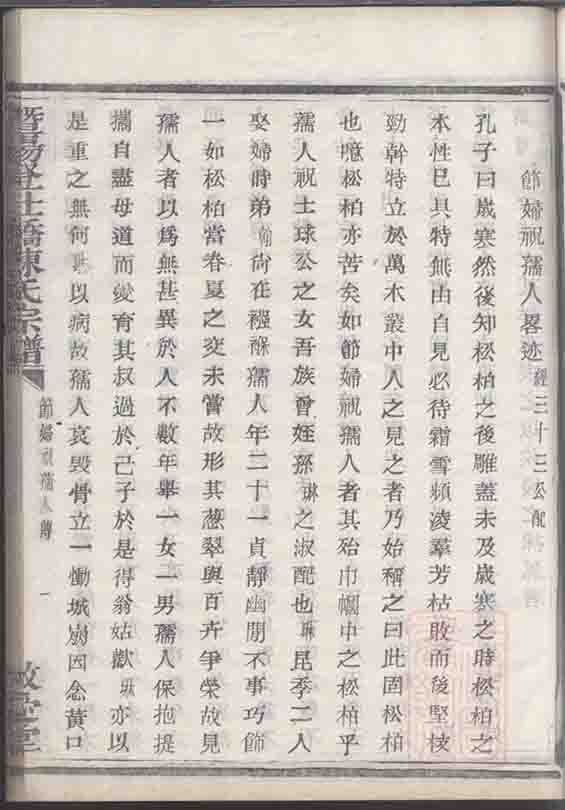 節婦祝孺人畧迹 經三十三公配
孔子曰歲寒然後知松柏之後雕蓋未及歲寒之時松柏之
本性已具特無由自見必待霜雪頻淩羣芳枯敗而後堅枝
勁幹特立於萬木叢中人之見之者乃始稱之曰此固松柏
也噫松柏亦苦矣如節婦祝孺人者其殆巾幗中之松柏乎
孺人祝土球公之女吾族曾姪孫琳之淑配也琳昆季二人
娶婦時弟尙在襁褓孺人年二十一貞靜幽閒不事巧飾
一如松柏當春夏之交未嘗故形其蔥翠與百卉爭榮故見
孺人者以爲無甚異於人不數年舉一女一男孺人保抱提
攜自盡母道而愛育其叔過於己子於是得翁姑歡琳亦以
是重之無何琳以病故孺人哀毀骨立一慟城崩因念黃口
節婦祝孺人傳 一
陳氏宗譜